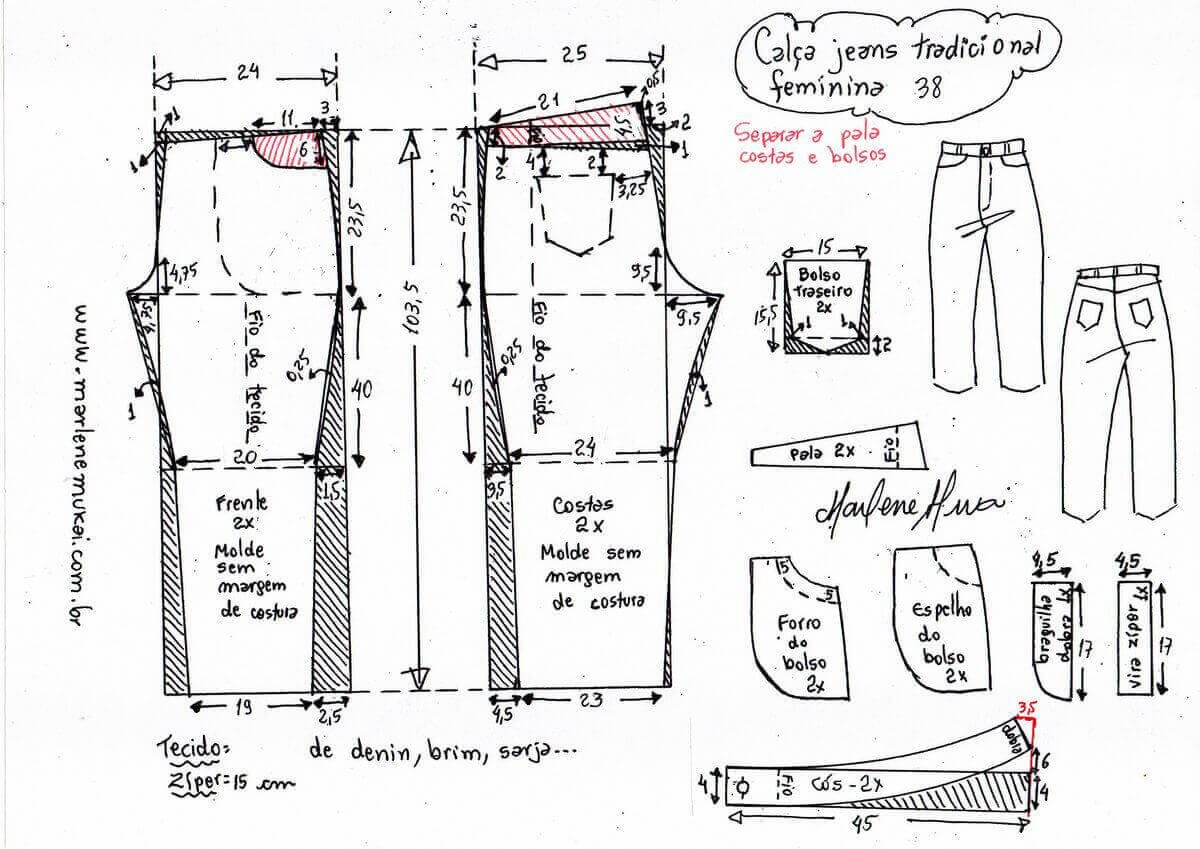 Calça jeans tradicional
feminina 38
Separar a pala
costas e bolsos
24
11
3
1
1
6
23,5
4,75
40
0,25
1
Fio do tecido
20
1,5
Frente
2x
Molde
sem
margem
de costura
19
2,5
103,5
25
21
0,5
3
4,5
2
1
2
4
2
3,25
23,5
9,5
9,5
40
0,25
1
Fio do tecido
24
3,5
Costas
2x
Molde sem
margem
de costura
4,5
23
15
Bolso
traseiro
2x
15,5
1
1
2
Pala 2x
Fio
Marlene Mukai
5
5
Forro
do
bolso
2x
Espelho
do
bolso
2x
4,5
braguilha
dobra 1x
17
4,5
vira zíper 1x
17
3,5
dobra
6
4
4
Fio
cós - 2x
45
Tecido: de denin, brim, sarja...
Zíper = 15 cm
www.marlenemukai.com.br